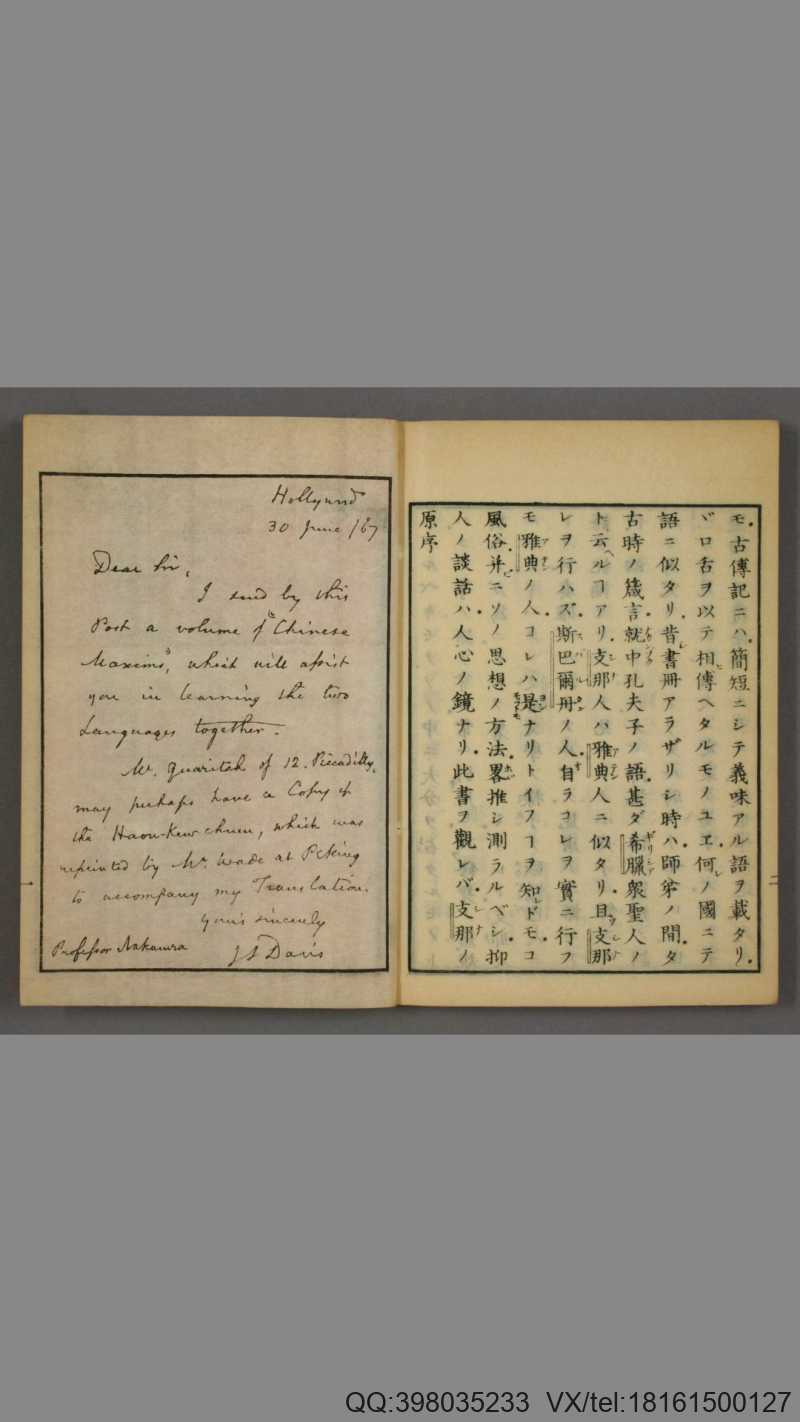 モ古傳記ニハ簡短ニシテ義味アル語ヲ載タリ
バロ舌ヲ以テ相傳ヘタルモノユヱ何ノ國ニテ
語ニ似タリ昔書冊アラザリシ時ハ師弟ノ間タ
古時ノ箴言就中孔夫子ノ語甚ダ希臘衆聖人ノ
ト云ヘルヿアリ支那人ハ雅典人ニ似タリ且支那
レヲ行ハズ斯巴爾册ノ人自ラコレヲ實ニ行フ
モ雅典ノ人コレハ是ナリトイフヿヲ知レドモコ
風俗并ニソノ思想ノ方法畧推シ測ラルベシ抑
人ノ談話ハ人心ノ鏡ナリ此書ヲ觀レバ支那ノ
原序
Hollywood
30 June /67
Dear Sir,
I send by this
Post a volume of "Chinese
Maxims", which will assist
you in learning the two
Languages together.
Mr. Quaritch of 12. Piccadilly,
may perhaps have a Copy of
the Haou-Kew chuen, which was
reprinted by Mr. Wade at Peking
to accompany my Translation.
Yours sincerely
J F Davis
Professor Nakamura
QQ:398035233 VX/tel:18161500127